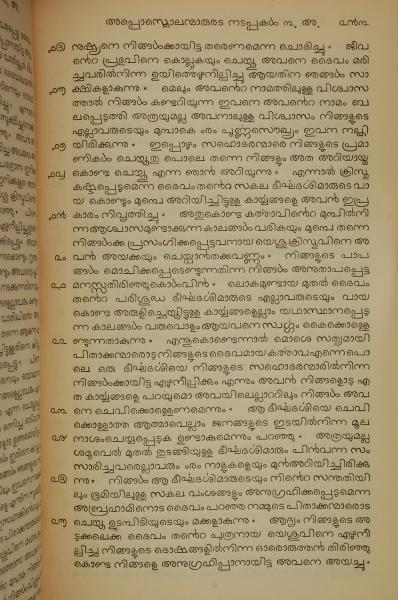 അപ്പൊസ്തൊലന്മാരുടെ നടപ്പുകൾ ൩. അ. ൨൯൩
൧൫ നുഷ്യനെ നിങ്ങൾക്കായിട്ട തരെണമെന്ന ചൊദിച്ചു * ജീവ
ന്റെ പ്രഭുവിനെ കൊല്ലുകയും ചെയ്തു അവനെ ദൈവം മരി
ച്ചവരിൽനിന്ന ഉയിൎത്തെഴുനീല്പിച്ചു ആയതിന ഞങ്ങൾ സാ
൧൬ ക്ഷികളാകുന്നു * മെലും അവന്റെ നാമത്തിലുള്ള വിശ്വാസ
ത്താൽ നിങ്ങൾ കണ്ടറിയുന്ന ഇവനെ അവന്റെ നാമം ബ
ലപ്പെടുത്തി അത്രയുമല്ല അവനാലുള്ള വിശ്വാസം നിങ്ങളുടെ
എല്ലാവരുടെയും മുമ്പാകെ ൟ പൂൎണ്ണസൌഖ്യം ഇവന നല്കി
൧൭ യിരിക്കുന്നു * ഇപ്പൊഴും സഹൊദരന്മാരെ നിങ്ങളുടെ പ്രമാ
ണികൾ ചെയ്തതു പൊലെ തന്നെ നിങ്ങളും അത അറിയായ്മ
൧൮ കൊണ്ട ചെയ്തു എന്ന ഞാൻ അറിയുന്നു * എന്നാൽ ക്രിസ്തു
കഷ്ടപ്പെടുമെന്ന ദൈവം തന്റെ സകല ദീൎഘദൎശിമാരുടെ വാ
യ കൊണ്ടും മുമ്പെ അറിയിച്ചിട്ടുള്ള കാൎയ്യങ്ങളെ അവൻ ഇപ്ര
൧൯ കാരം നിവൃത്തിച്ചു * അതുകൊണ്ട കൎത്താവിന്റെ മുമ്പിൽനി
ന്ന ആശ്വാസമുണ്ടാകുന്ന കാലങ്ങൾ വരികയും മുമ്പെ തന്നെ
നിങ്ങൾക്ക പ്രസംഗിക്കപ്പെട്ടവനായ യെശു ക്രിസ്തുവിനെ അ
൨൦ വൻ അയക്കയും ചെയ്വാൻതക്കവണ്ണം * നിങ്ങളുടെ പാപ
ങ്ങൾ മൊചിക്കപ്പെടെണ്ടുന്നതിന്ന നിങ്ങൾ അനുതാപപ്പെട്ട
൨൧ മനസ്സതിരിഞ്ഞുകൊൾവിൻ * ലൊകമുണ്ടായ മുതൽ ദൈവം
തന്റെ പരിശുദ്ധ ദീൎഘദൎശിമാരുടെ എല്ലാവരുടെയും വായ
കൊണ്ട അരുളിച്ചെയ്തിട്ടുള്ള കാൎയ്യങ്ങളെല്ലാം യഥാസ്ഥാനപ്പെടു
ന്ന കാലങ്ങൾ വരുവൊളം ആയവനെ സ്വൎഗ്ഗം കൈക്കൊള്ളെ
൨൨ ണ്ടുന്നതാകുന്നു * എന്തുകൊണ്ടെന്നാൽ മൊശെ സത്യമായി
പിതാക്കന്മാരൊടു നിങ്ങളുടെ ദൈവമായ കൎത്താവ എന്നെപൊ
ലെ ഒരു ദീൎഘദൎശിയെ നിങ്ങളുടെ സഹൊദരന്മാരിൽനിന്ന
നിങ്ങൾക്കായിട്ട എഴുനീല്പിക്കും എന്നും അവൻ നിങ്ങളൊടു എ
ത കാൎയ്യങ്ങളെ പറയുമൊ അവയിലെല്ലാറ്റിലും നിങ്ങൾ അവ
൨൩ നെ ചെവിക്കൊള്ളെണമെന്നും * ആ ദീൎഘദൎശിയെ ചെവി
ക്കൊള്ളാത്ത ആത്മാവെല്ലാം ജനങ്ങളുടെ ഇടയിൽനിന്ന മൂല
൨൪ നാശംചെയ്യപ്പെടുക ഉണ്ടാകുമെന്നും പറഞ്ഞു * അത്രയുമല്ല
ശമുവെൽ മുതൽ തുടങ്ങിയുള്ള ദീൎഘദൎശിമാരും പിൻവന്ന സം
സാരിച്ചവരെല്ലാവരും ൟ നാളുകളെയും മുൻഅറിയിച്ചിരിക്കു
൨൫ ന്നു * നിങ്ങൾ ആ ദീൎഘദൎശിമാരുടെയും നിന്റെ സന്തതിയി
ലും ഭൂമിയിലുള്ള സകല വംശങ്ങളും അനുഗ്രഹിക്കപ്പെടുമെന്ന
അബ്രഹാമിനൊട ദൈവം പറഞ്ഞ നമ്മുടെ പിതാക്കന്മാരൊട
൨൬ ചെയ്ത ഉടമ്പടിയുടെയും മക്കളാകുന്നു * ആദ്യം നിങ്ങളുടെ അ
ടുക്കലെക്ക ദൈവം തന്റെ പുത്രനായ യെശുവിനെ എഴുനീ
ല്പിച്ച നിങ്ങളുടെ ദൊഷങ്ങളിൽനിന്ന ഓരൊരുത്തൻ തിരിഞ്ഞു
കൊണ്ട നിങ്ങളെ അനുഗ്രഹിപ്പാനായിട്ട അവനെ അയച്ചു *